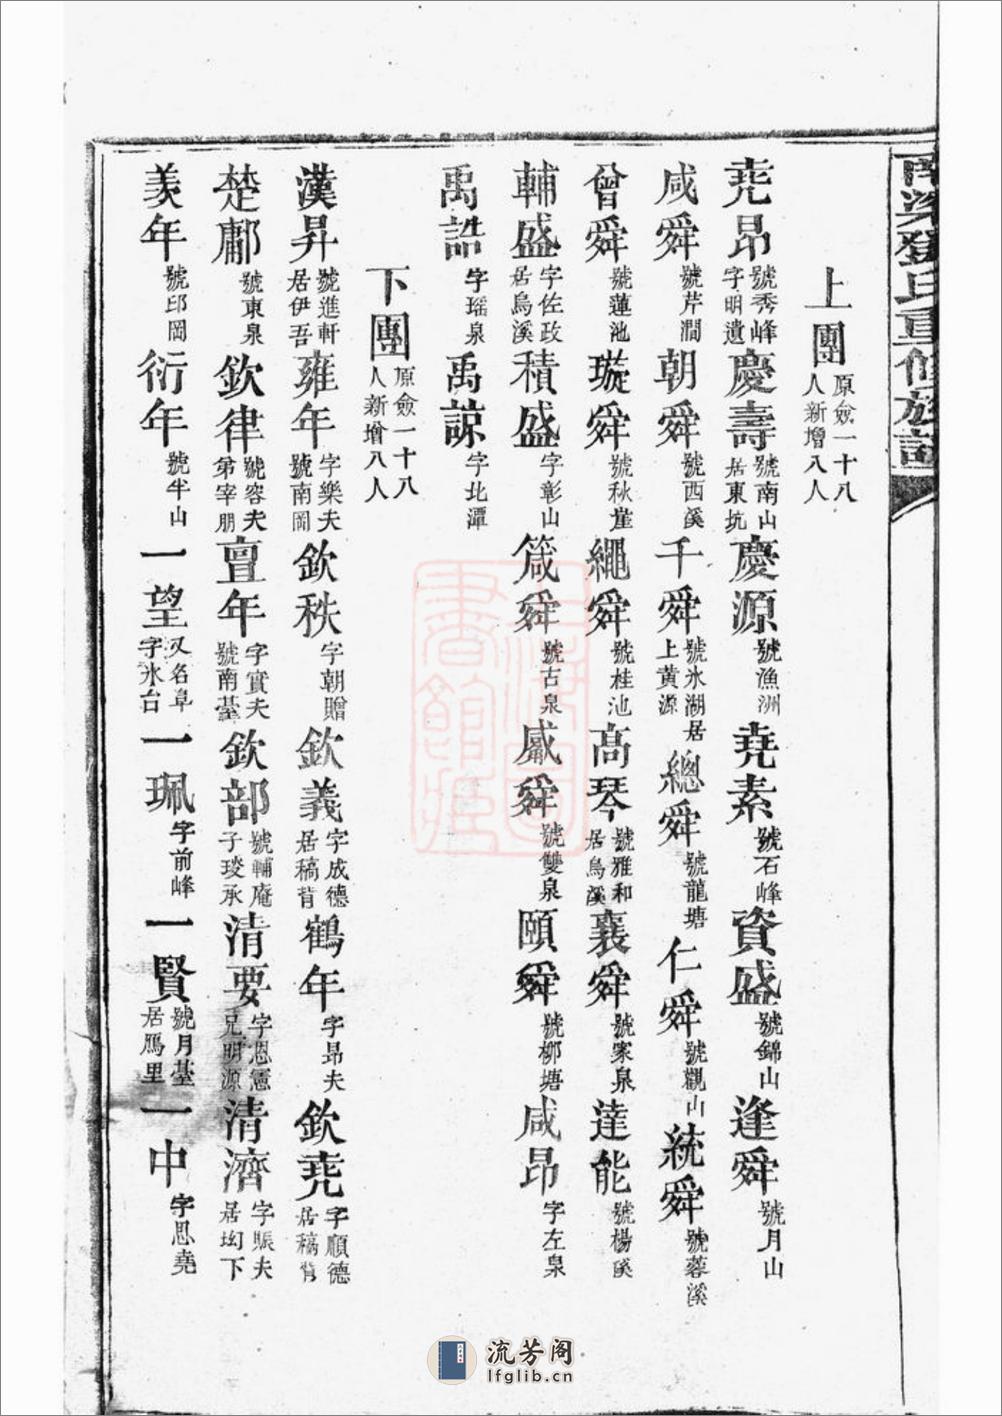 南梁鄧氏重修族譜
上團 原僉一十八人新增八人
堯昂 號秀峰字明遺 慶壽 號南山居東坑 慶源 號漁洲 堯素 號石峰 資盛 號錦山 逢舜 號月山
咸舜 號芹澗 朝舜 號西溪 千舜 號氷湖居上黄源 總舜 號龍塘 仁舜 號觀山 統舜 號蓉溪
曾舜 號蓮池 璇舜 號秋崖 繩舜 號桂池 高琴 號雅和居烏溪 襄舜 號家泉 達能 號楊溪
輔盛 字佐政居烏溪 積盛 字彰山 箴舜 號古泉 勵舜 號雙泉 頤舜 號柳塘 咸昂 字左泉
禹誥 字瑶泉 禹諒 字北潭
下團 原僉一十八人新增八人
漢昇 號進軒居伊吾 雍年 字樂夫號南岡 欽秩 字朝贈 欽義 字成德居稿背 鶴年 字昂夫 欽堯 字順德居稿背
楚鄘 號東泉 欽律 號容夫第宰朋 亶年 字實夫號南臺 欽部 號輔庵子琰承 清要 字恩憲兄明源 清濟 字賬夫居㘭下
羙年 號邱岡 衍年 號半山 一望 又名阜字氷台 一珮 字前峰 一賢 號月臺居鳫里 一中 字恩堯
上海圖書館藏
流芳阁
lfglib.cn